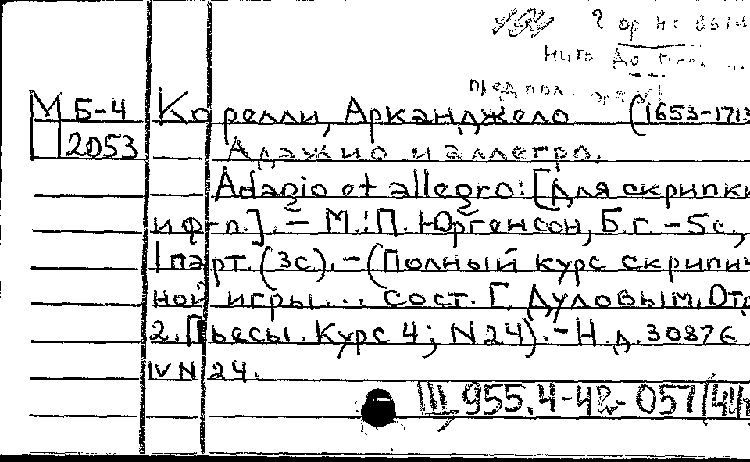 М Б-4 Корелли, Арканджело (1653-1713
2053 Адажио и аллегро.
Adagio et allegro: [для скрипки
и ф-п.]. – М.: П. Юргенсон, Б.г. – 5с.,
1 парт. (3с). – (Полный курс скрипич
ной игры... сост. Г. Дуловым. Отд
2. Пьесы. Курс 4; N 24). – Н.д. 30876
IV N 24.
III 955.4-42-057/41